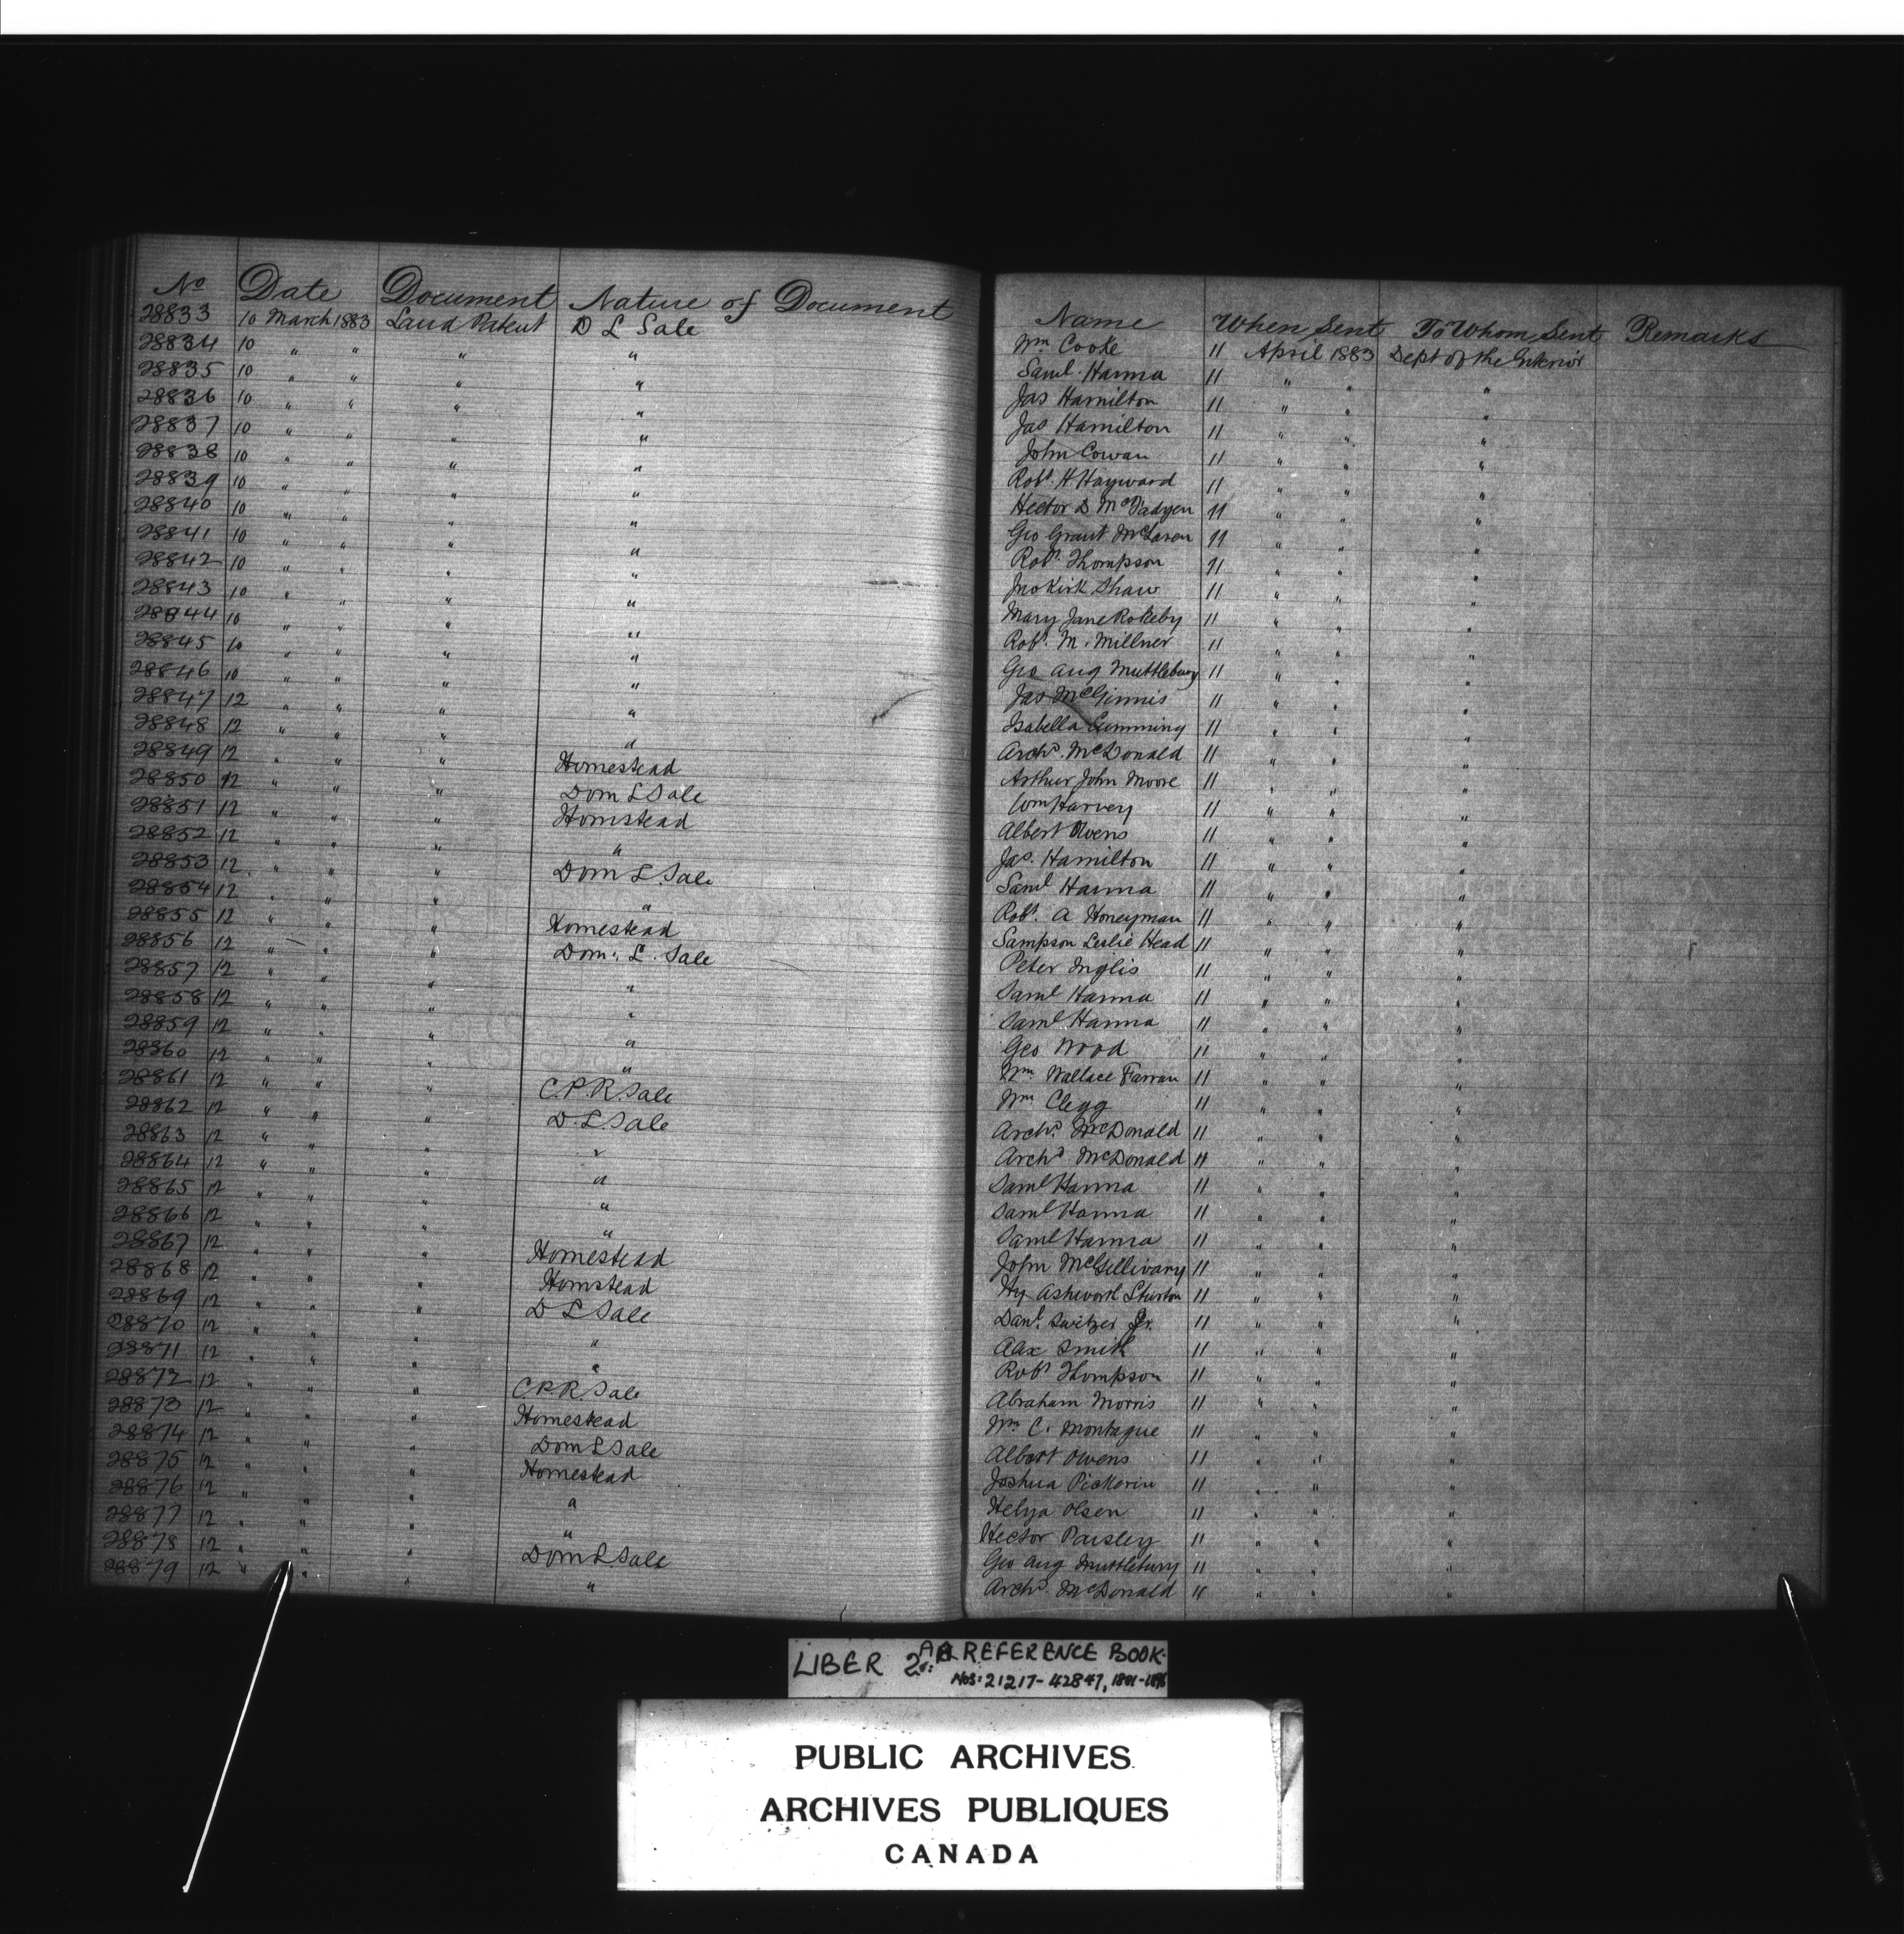 No Date Document Nature of Document
28833 10 March 1883 Land Patent D L Sale
28834 10 " " " "
28835 10 " " " "
28836 10 " " " "
28837 10 " " " "
28838 10 " " " "
28839 10 " " " "
28840 10 " " " "
28841 10 " " " "
28842 10 " " " "
28843 10 " " " "
28844 10 " " " "
28845 10 " " " "
28846 10 " " " "
28847 12 " " " "
28848 12 " " " "
28849 12 " " " Homestead
28850 12 " " " Dom L Sale
28851 12 " " " Homstead
28852 12 " " " "
28853 12 " " " Dom L. Sale
28854 12 " " " "
28855 12 " " " Homestead
28856 12 " " " Dom. L. Sale
28857 12 " " " "
28858 12 " " " "
28859 12 " " " "
28860 12 " " " "
28861 12 " " " C.P.R. Sale
28862 12 " " " D. L. Sale
28863 12 " " " "
28864 12 " " " "
28865 12 " " " "
28866 12 " " " "
28867 12 " " " Homestead
28868 12 " " " Homstead
28869 12 " " " D L Sale
28870 12 " " " "
28871 12 " " " "
28872 12 " " " C.P.R. Sale
28873 12 " " " Homestead
28874 12 " " " Dom L Sale
28875 12 " " " Homestead
28876 12 " " " "
28877 12 " " " "
28878 12 " " " Dom L. Sale
28879 12 " " " "
Name When Sent To Whom Sent Remarks
Wm Cooke 11 April 1883 Dept of the Interior
Saml. Hanna 11 " " "
Jas Hamilton 11 " " "
Jas Hamilton 11 " " "
John Cowan 11 " " "
Robt. H Hayward 11 " " "
Hector D McFadyen 11 " " "
Geo Grant McLaren 11 " " "
Robt. Thompson 11 " " "
Jno Kirk Shaw 11 " " "
Mary Jane Rokeby 11 " " "
Robt. M. Millner 11 " " "
Geo Aug Muttlebury 11 " " "
Jas McGinnis 11 " " "
Isabella Cumming 11 " " "
Archd. McDonald 11 " " "
Arthur John Moore 11 " " "
Wm Harvey 11 " " "
Albert Owens 11 " " "
Jas. Hamilton 11 " " "
Saml Hanna 11 " " "
Robt. A Honeyman 11 " " "
Sampson Leslie Head 11 " " "
Peter Inglis 11 " " "
Saml Hanna 11 " " "
Saml Hanna 11 " " "
Geo Wood 11 " " "
Wm. Wallace Farran 11 " " "
Wm Clegg 11 " " "
Archd. McDonald 11 " " "
Archd McDonald 11 " " "
Saml Hanna 11 " " "
Saml Hanna 11 " " "
Saml Hanna 11 " " "
John McGillivary 11 " " "
Hy Ashworth 11 " " "
Danl. Switzer Jr. 11 " " "
Alex Smith 11 " " "
Robt Thompson 11 " " "
Abraham Morris 11 " " "
Wm C. Montague 11 " " "
Albert Owens 11 " " "
Joshua Pickerin 11 " " "
Helya Olsen 11 " " "
Hector Paisley 11 " " "
Geo Aug Muttlebury 11 " " "
Archd. McDonald 11 " " "
LIBER 2 REFERENCE BOOK
NOS: 21217-42847,
PUBLIC ARCHIVES
ARCHIVES PUBLIQUES
CANADA